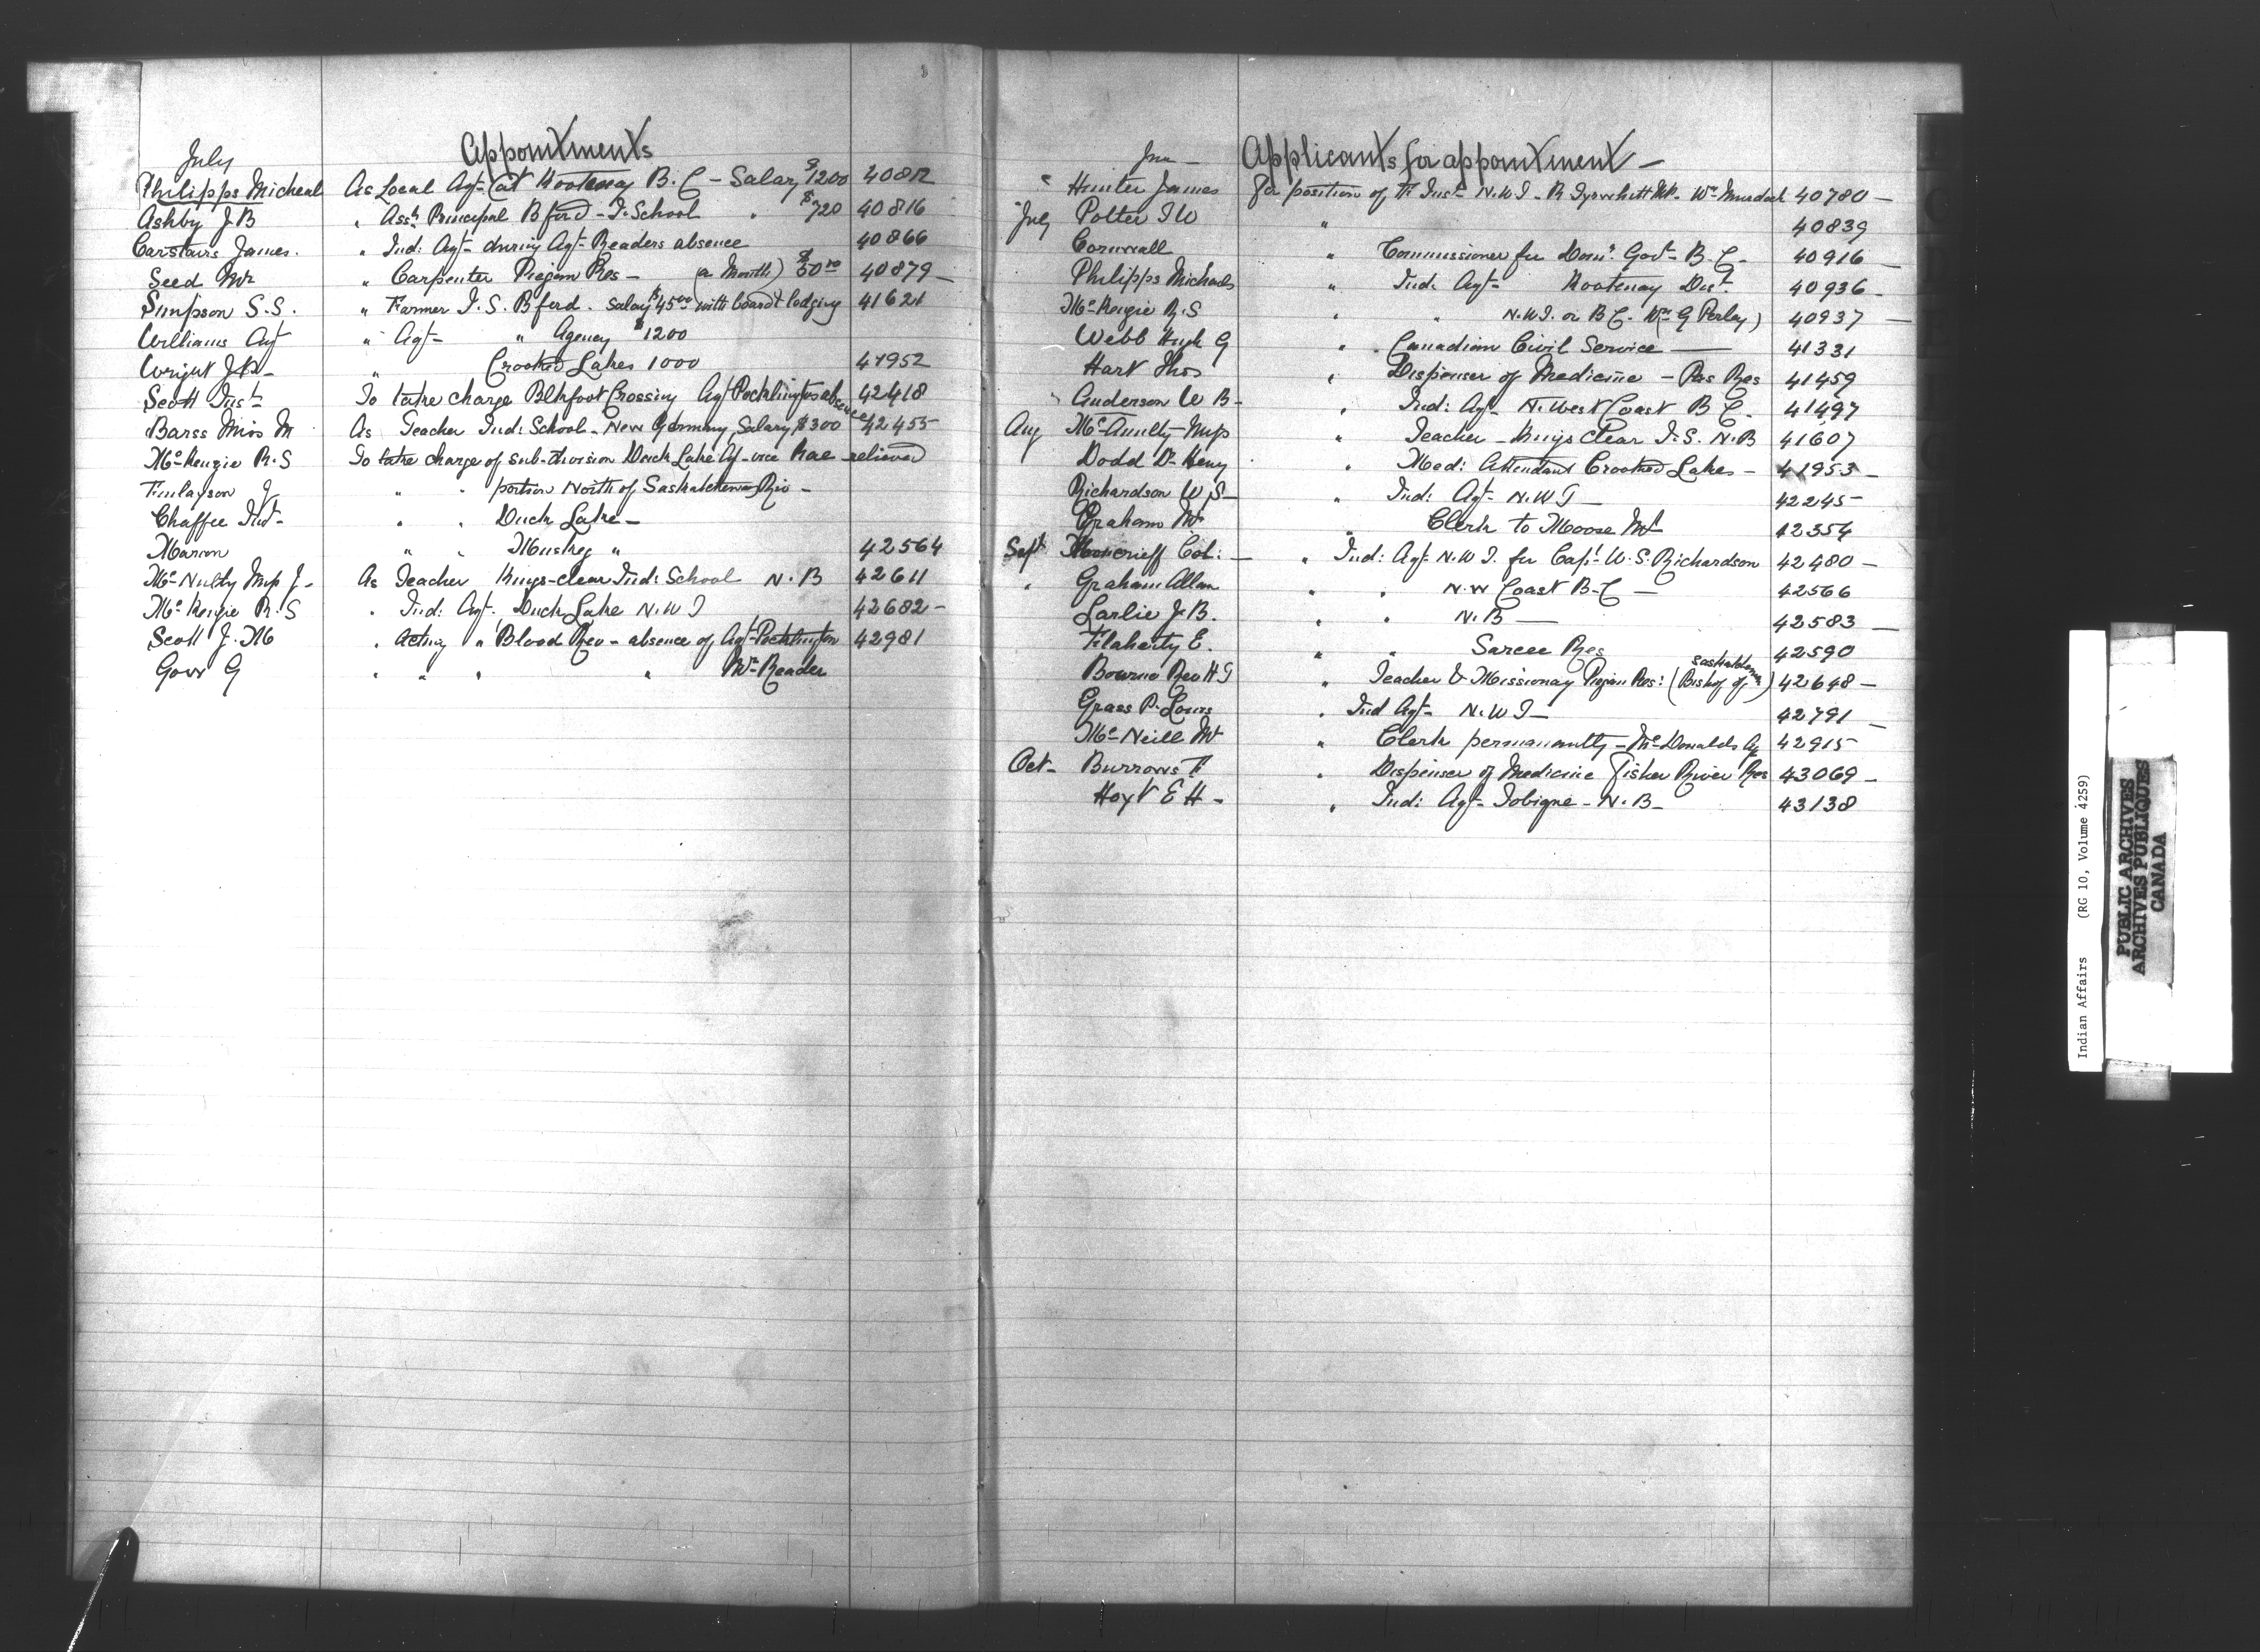 July
Appointments
Philipps Micheal As Local Agt- (at Kootenay B.C - Salary $1200 40812
Ashby J.B " Asst Principal Bford - I. School " $720 40816
Carstairs James. " Ind: Agt- during Agt- Readers absence 40866
Seed Mr " Carpenter Piegan Res - (a Month) $50.00 40879 -
Simpson S.S. " Farmer I.S. Bford - Salary $45.00 with board & lodging 41621
Williams Agt " Agt- " Agency $1200
Wright J.P. - " Crooked Lakes 1000 41952
Scott Inst- To take charge Blkfoot Crossing Agt Pocklingtons absence 42418
Barss Miss M As Teacher Ind: School - New Germany Salary $300 42455
McKenzie R.S To take charge of sub-division Duck Lake Ag - vice Rae - relieved
Finlayson J " " portion North of Saskatchewan Riv -
Chaffee Inst- " " Duck Lake -
Marion " " Muskeg " 42564
McNulty J - As Teacher Kings-clear Ind: School N.B 42611
McKenzie R.S " Ind: Agt. Duck Lake N.W.T 42682 -
Scott J.M " Acting " Blood Res - absence of Agt- Pocklington 42981
Gowr G " " " " Mr Reader
Applicants for appointment -
" Hunter James For position of N.W.T. - Wm Murdoch 40780 -
July Potter I W " 40839
Cornwall " Commissioner for Domn Govt- B.C. 40916 -
Philipps Michael " Ind: Agt- Kootenay Dist. 40936 -
McKenzie R.S " " N.W.T. or B.C. (Wm G Perley) 40937 -
Webb Hugh G " Canadian Civil Service - 41331
Hart Thos " Dispenser of Medicine - Pas Res 41459
" Anderson W B - " Ind: Agt- N. West Coast B.C. 41497
Aug McAnulty " Teacher - Kings Clear I.S. N.B 41607
Dodd Dr Heny " Med: Attendant Crooked Lakes - 41953 -
Richardson W.S - " Ind: Agt- N.W.T - 42245 -
Graham Mr " Clerk to Moose Mt 42354
Sept Moncrieff Col: - " Ind: Agt- N.W.T. for Capt W.S. Richardson 42480 -
" Graham Allan " " N.W Coast B.C - 42566
Larlie J.B. " " N.B - 42583 -
Flaherty E. " " Sarcee Res 42590
Bourne Rev H T " Teacher & Missionary Piegan Res: (Bishop of Saskatchewan) 42648 -
Grass P. Louis " Ind Agt- N.W.T - 42791 -
McNeill Mr " Clerk permanently - McDonalds Ag 42915
Oct- Burrows F " Dispenser of Medicine Fisher River Res 43069 -
Hoyt E H - " Ind: Agt- Tobique - N.B - 43138
Indian Affairs (RG 10, Volume 4259)
PUBLIC ARCHIVES
ARCHIVES PUBLIQUES
CANADA